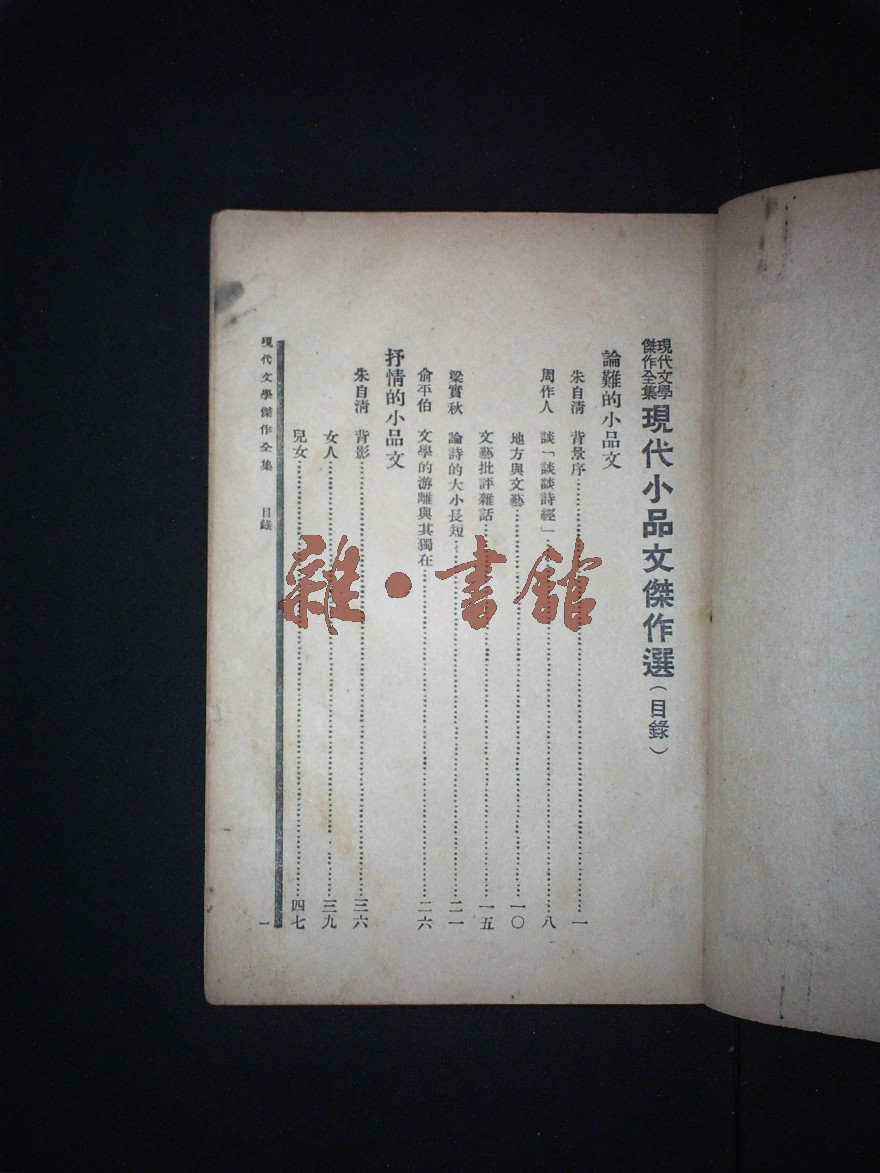 現代文學
傑作全集
現代小品文傑作選（目錄）
論難的小品文
朱自淸 背景序…………一
周作人 談「談談詩經」…………八
地方與文藝…………一〇
文藝批評雜話…………一五
梁實秋 論詩的大小長短…………二一
俞平伯 文學的游離與其獨在…………二六
抒情的小品文
朱自淸 背影…………三六
女人…………三九
兒女…………四七
現代文學傑作全集 目錄 一
雜·書館